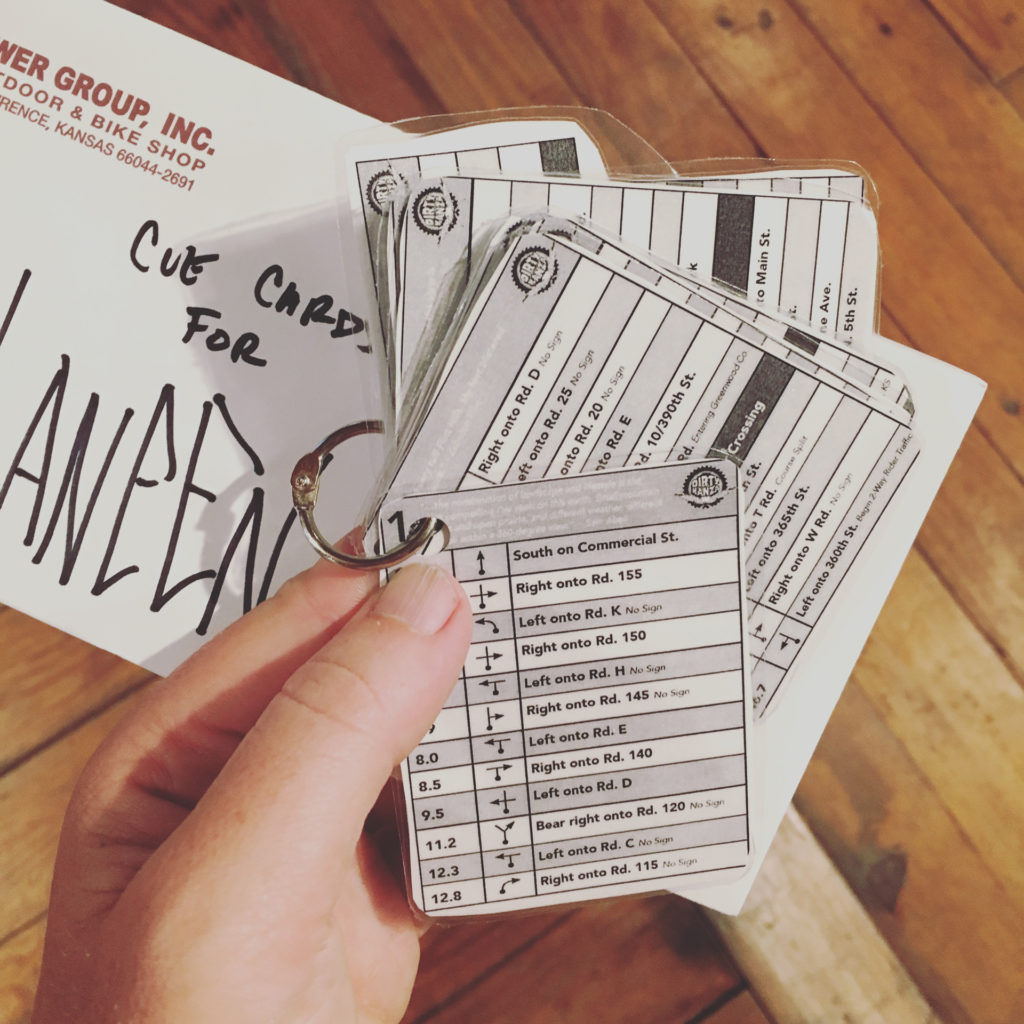 WER GROUP, INC.
TDOOR & BIKE SHOP
RENCE, KANSAS 66044-2691
CUE CARDS
FOR
DIRTY
KANZA
to Main St.
ne Ave.
5th St.
KS
DIRTY
KANZA
Right onto Rd. D No Sign
eft onto Rd. 25 No Sign
onto Rd. 20 No Sign
onto Rd. E
Rd. 10/390th St.
Rd. Entering Greenwood Co
Crossing
St.
onto T Rd. Course Split
Left onto 365th St.
Right onto W Rd. No Sign
Left onto 360th St. Begin 2-Way Rider Traffic
6.7
1
DIRTY
KANZA
South on Commercial St.
Right onto Rd. 155
Left onto Rd. K No Sign
Right onto Rd. 150
Left onto Rd. H No Sign
Right onto Rd. 145 No Sign
8.0 Left onto Rd. E
8.5 Right onto Rd. 140
9.5 Left onto Rd. D
11.2 Bear right onto Rd. 120 No Sign
12.3 Left onto Rd. C No Sign
12.8 Right onto Rd. 115 No Sign